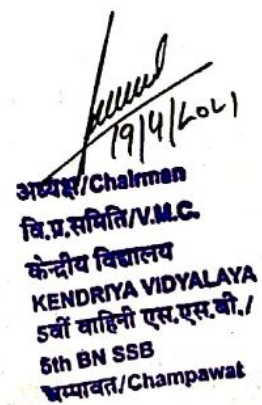 19/4/2021
अध्यक्ष/Chairman
वि.प्र.समिति/V.M.C.
केन्द्रीय विद्यालय
KENDRIYA VIDYALAYA
5वीं वाहिनी एस.एस.बी./
5th BN SSB
चम्पावत/Champawat